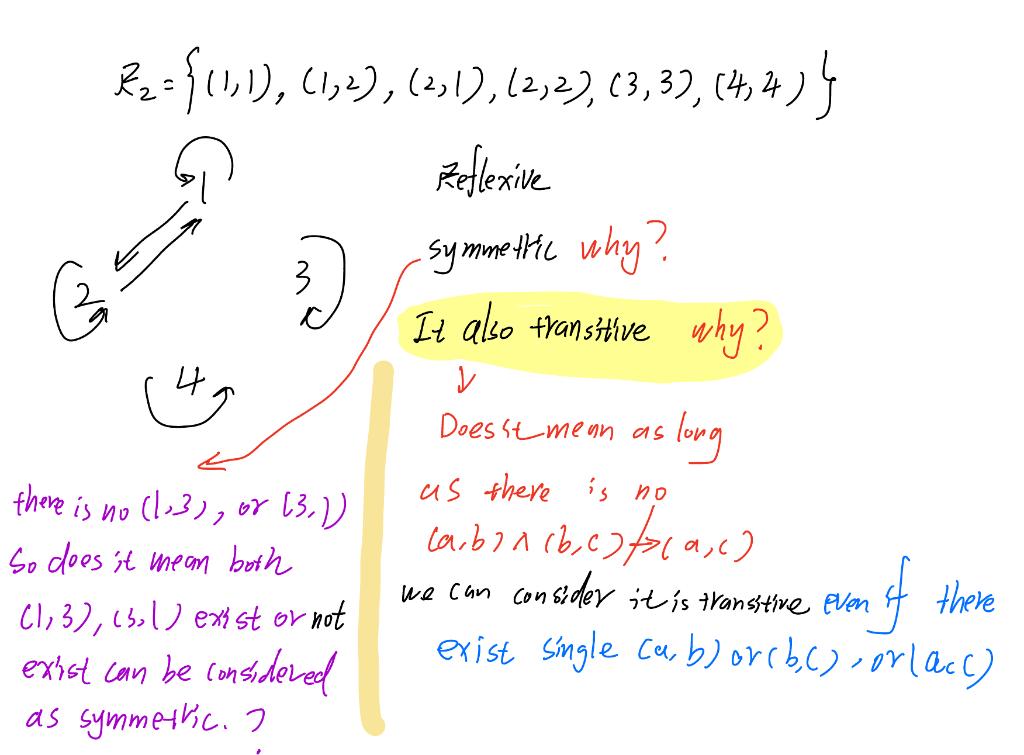 R₂ = {(1,1), (1,2), (2,1), (2,2), (3,3), (4,4)}
1
2
3
4
Reflexive
symmetric why?
It also transitive why?
Does it mean as long
as there is no
(a,b) ∧ (b,c) ↛ (a,c)
we can consider it is transitive even if there
exist single (a,b) or (b,c), or (a,c)
there is no (1,3), or (3,1)
So does it mean both
(1,3), (3,1) exist or not
exist can be considered
as symmetric. ?